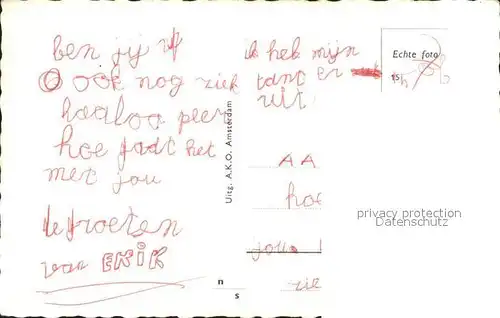 ben jij
ook nog ziek
haaloa peer
hoe gadt het
met jou
degroeten
van ERIK
Uitg. A.K.O. Amsterdam
ik heb mijn
tant er
uit
Echte foto
AA
hoe
jou
zie
n
s
privacy protection
Datenschutz